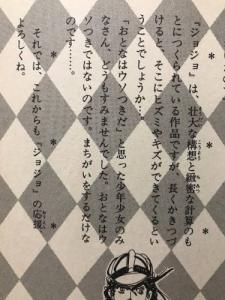 『ジョジョ』は、壮大な構想と緻密な計算のも
とにつくられている作品ですが、長くかきつづ
けると、そこにヒズミやキズができてくるとい
うことでしょうか…。
「おとなはウソつきだ」と思った少年少女のみ
なさん、どうもすみませんでした。おとなはウ
ソつきではないのです。まちがいをするだけな
のです……。
それでは、これからも『ジョジョ』の応援
よろしくね。